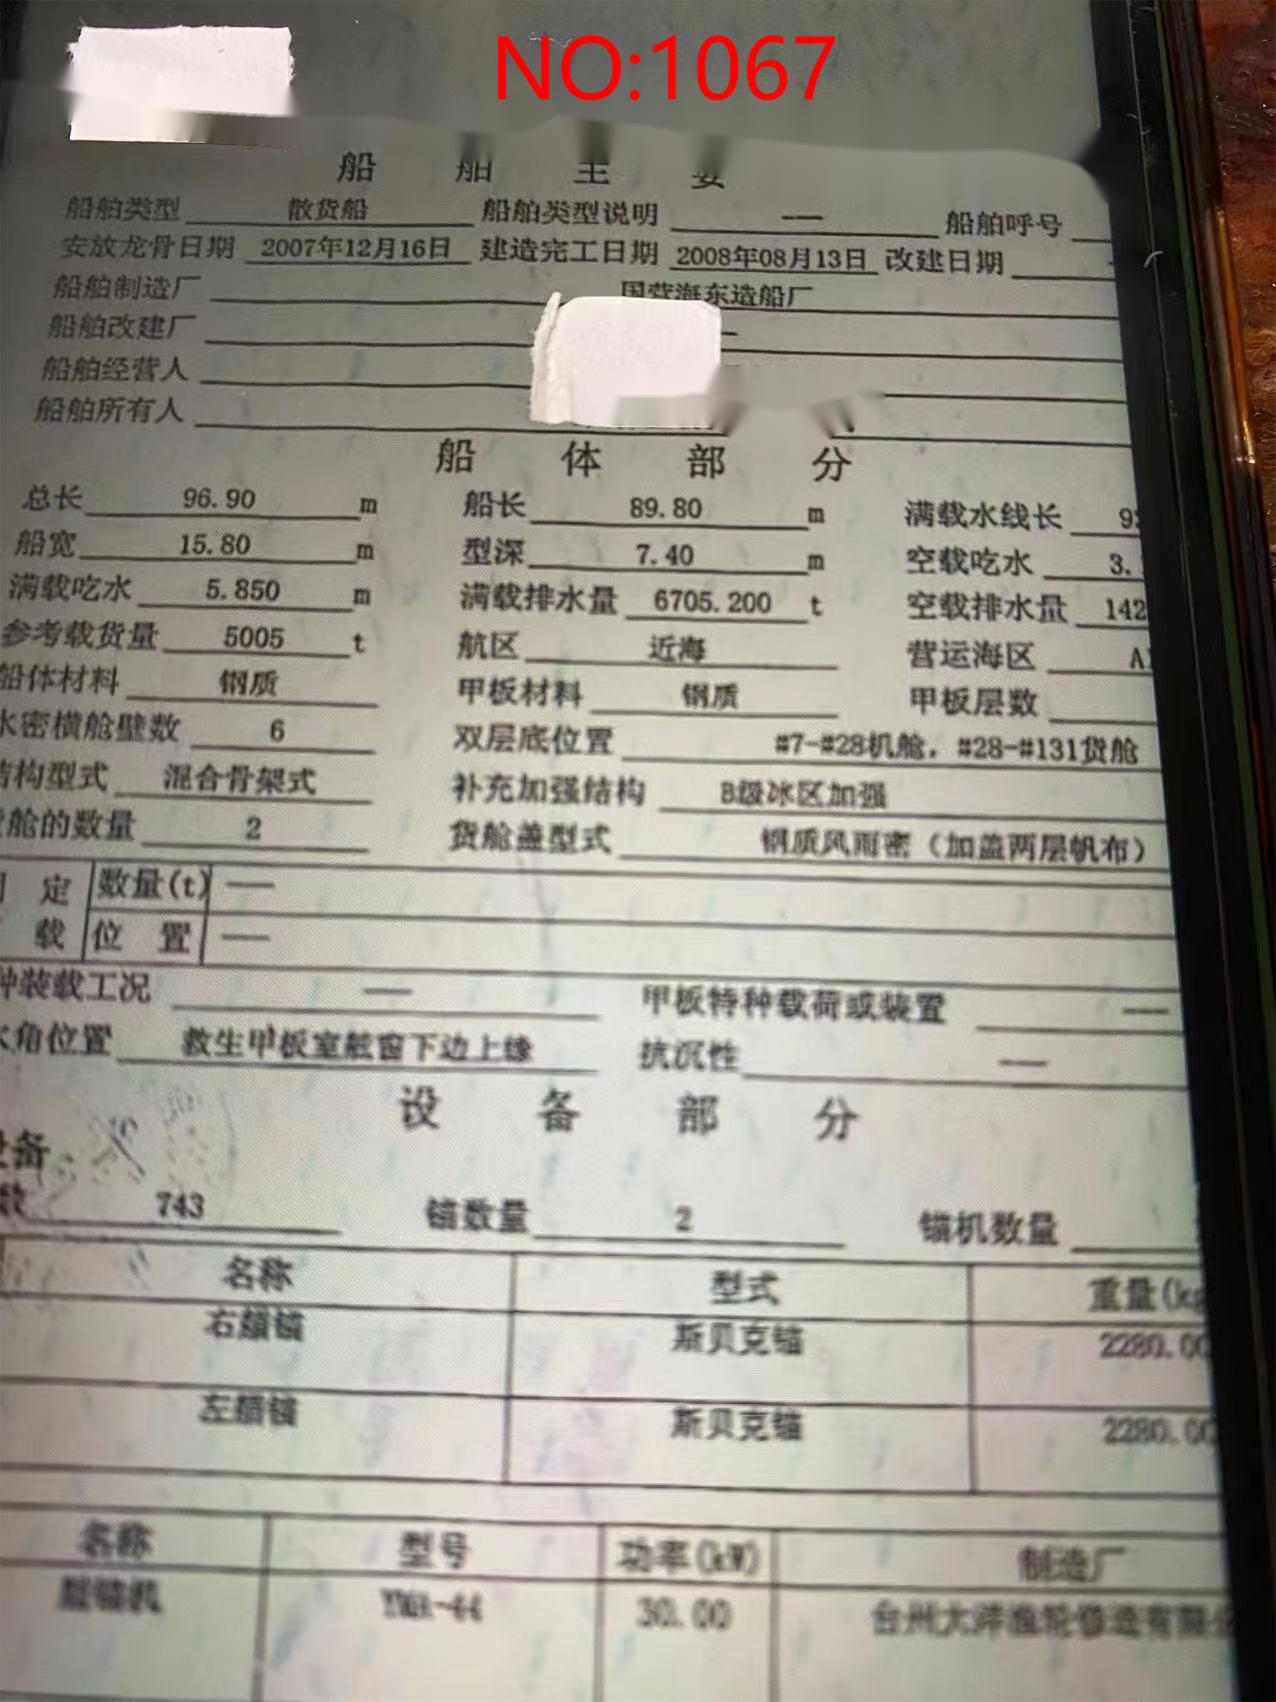 NO:1067
船 舶 主 要
船舶类型 散货船 船舶类型说明 — 船舶呼号
安放龙骨日期 2007年12月16日 建造完工日期 2008年08月13日 改建日期
船舶制造厂 国营海东造船厂
船舶改建厂 —
船舶经营人
船舶所有人
船 体 部 分
总长 96.90 m 船长 89.80 m 满载水线长 9
船宽 15.80 m 型深 7.40 m 空载吃水 3.
满载吃水 5.850 m 满载排水量 6705.200 t 空载排水量 142
参考载货量 5005 t 航区 近海 营运海区 A
船体材料 钢质 甲板材料 钢质 甲板层数
水密横舱壁数 6 双层底位置 #7-#28机舱，#28-#131货舱
结构型式 混合骨架式 补充加强结构 B级冰区加强
舱的数量 2 货舱盖型式 钢质风雨密（加盖两层帆布）
定 数量(t) —
载 位 置 —
种装载工况 — 甲板特种载荷或装置 —
角位置 救生甲板室舷窗下边上缘 抗沉性 —
设 备 部 分
设备
数 743 锚数量 2 锚机数量
名称 型式 重量(kg
右艏锚 斯贝克锚 2280.00
左艏锚 斯贝克锚 2280.00
名称 型号 功率(kW) 制造厂
30.00 台州大洋渔轮修造有限